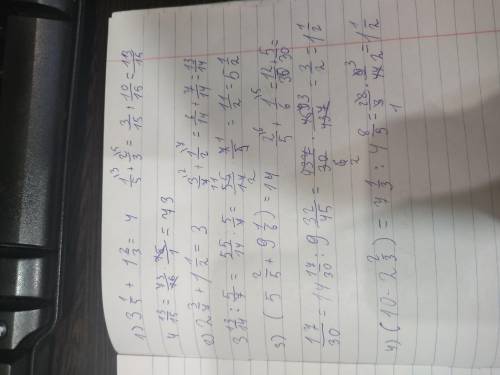 1) 3 1/5 + 1 2/3 = 4 1/5 + 2/3 = 3/15 + 10/15 = 13/15
4 13/15 = 73/15 15/1 = 73
2) 2 3/7 + 1 1/2 = 3 3/7 + 1/2 = 6/14 + 7/14 = 13/14
3 13/14 : 5/7 = 55/14 : 5/7 = 55/14 7/5 = 11/2 = 5 1/2
3) (5 2/5 + 9 1/6) = 14 2/5 + 1/6 = 12/30 + 5/30 =
17/30 = 14 17/30 : 9 32/45 = 437/30 : 45/437 = 3/2 = 1 1/2
4) (10 - 2 2/3) = 7 1/3 : 4